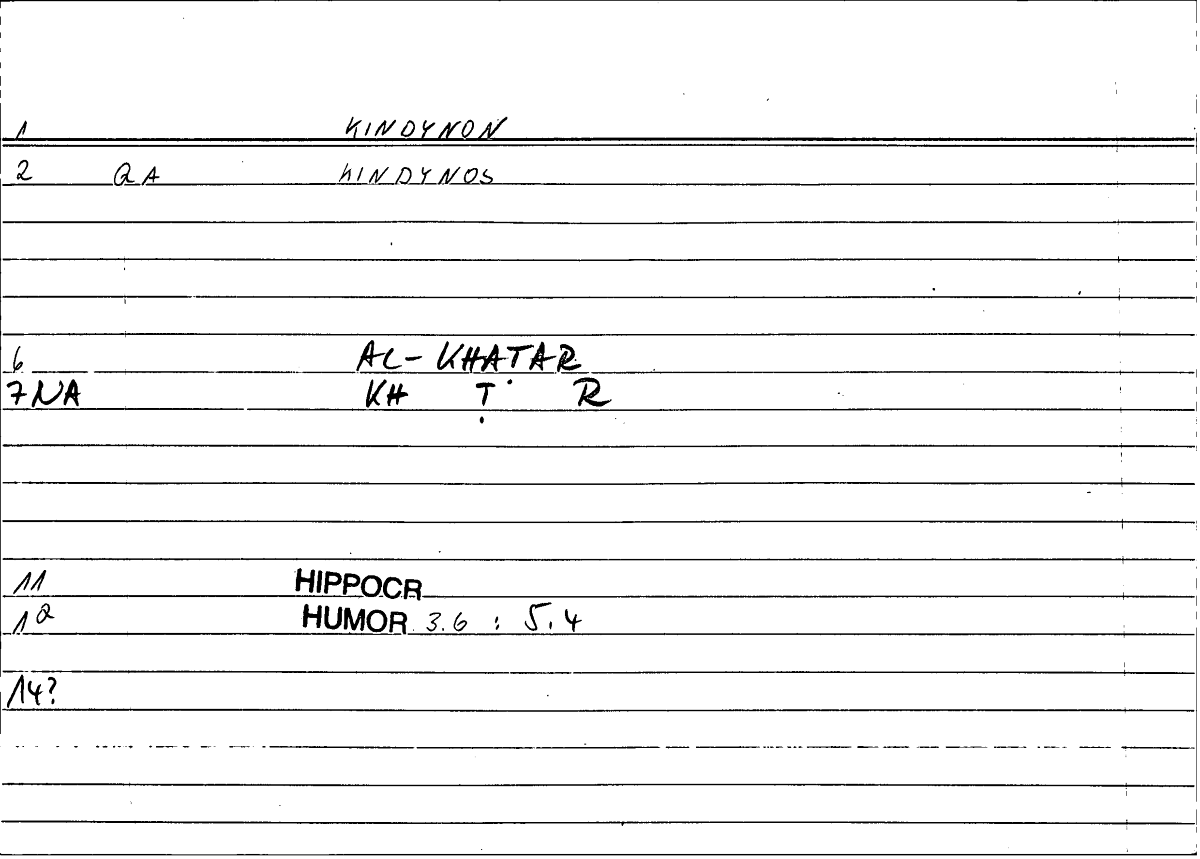 1 KINDYNON
2 QA KINDYNOS
6 AL-KHAṬAR
7NA KH Ṭ R
11 HIPPOCR
12 HUMOR 3.6 : 5.4
14?